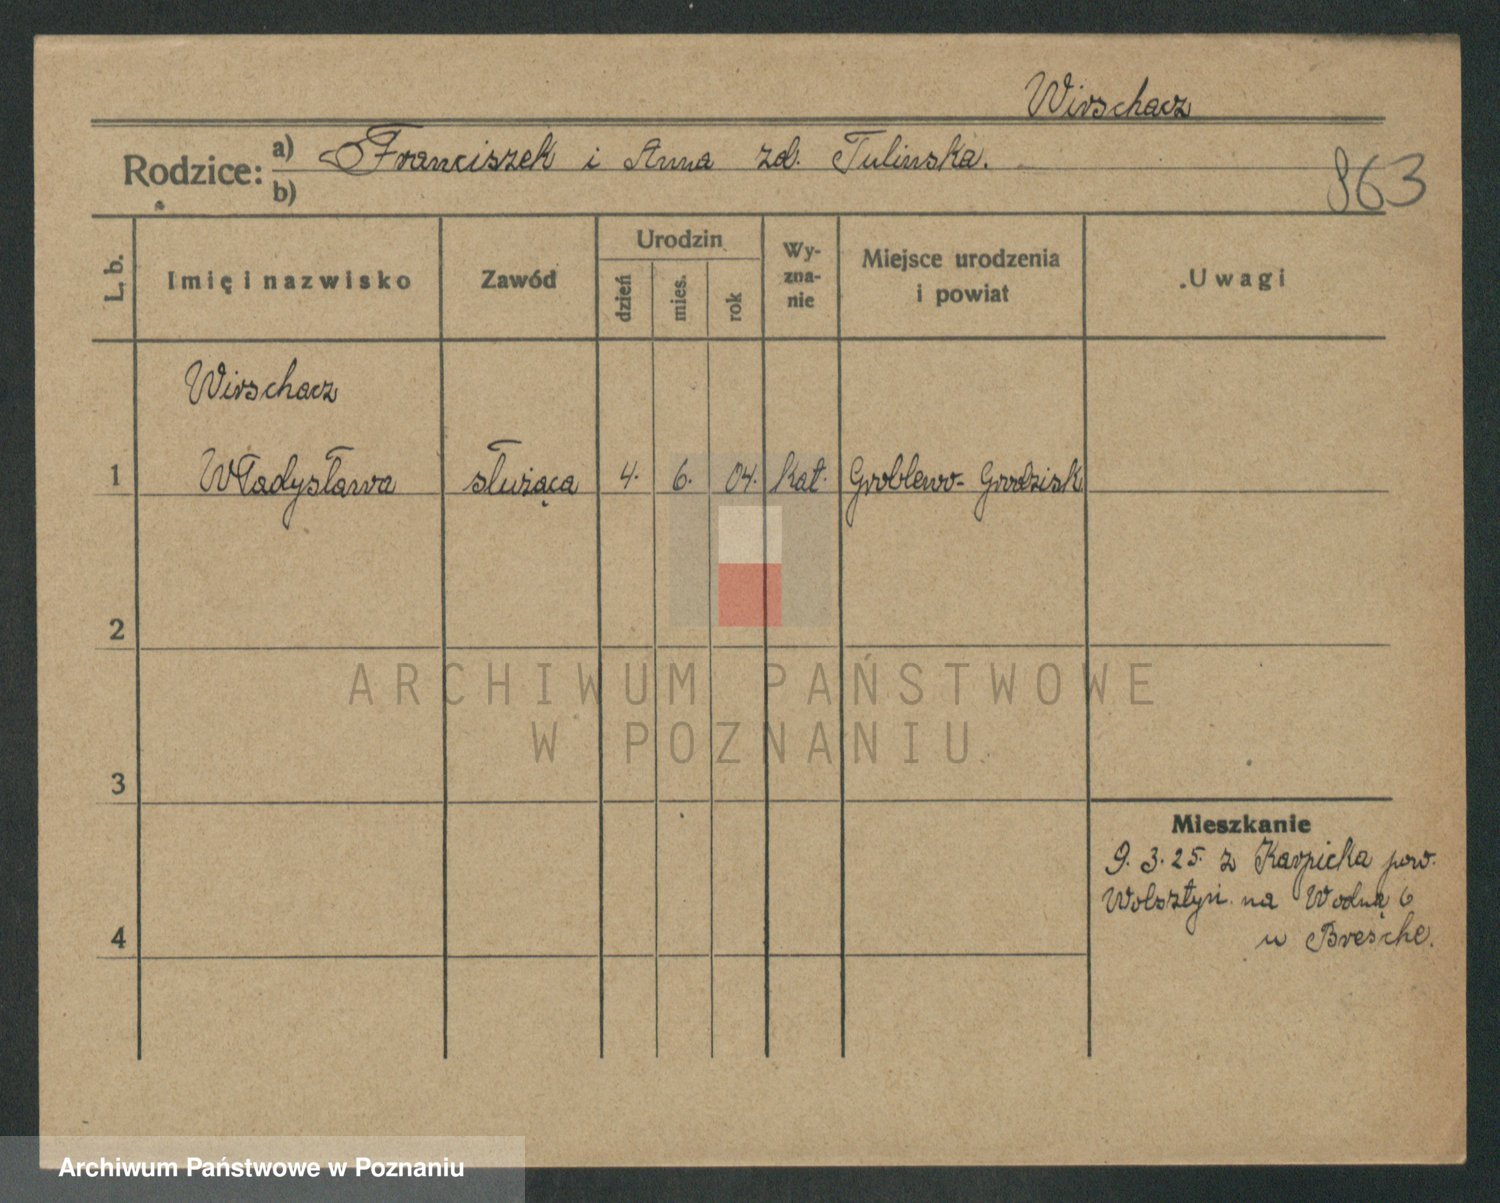 Wirschacz
Rodzice: a) Franciszek i Anna zd. Tulinska.
b)
863
L. b.
Imię i nazwisko
Zawód
Urodzin
dzień
mies.
rok
Wy-
zna-
nie
Miejsce urodzenia
i powiat
Uwagi
Wirschacz
1 Władysława służąca 4. 6. 04. kat. Groblewo- Grodzisk
2
3
4
Mieszkanie
9. 3. 25. z Karpicka pow.
Wolsztyn na Wodną 6
u Bresche.
ARCHIWUM PAŃSTWOWE
W POZNANIU
Archiwum Państwowe w Poznaniu